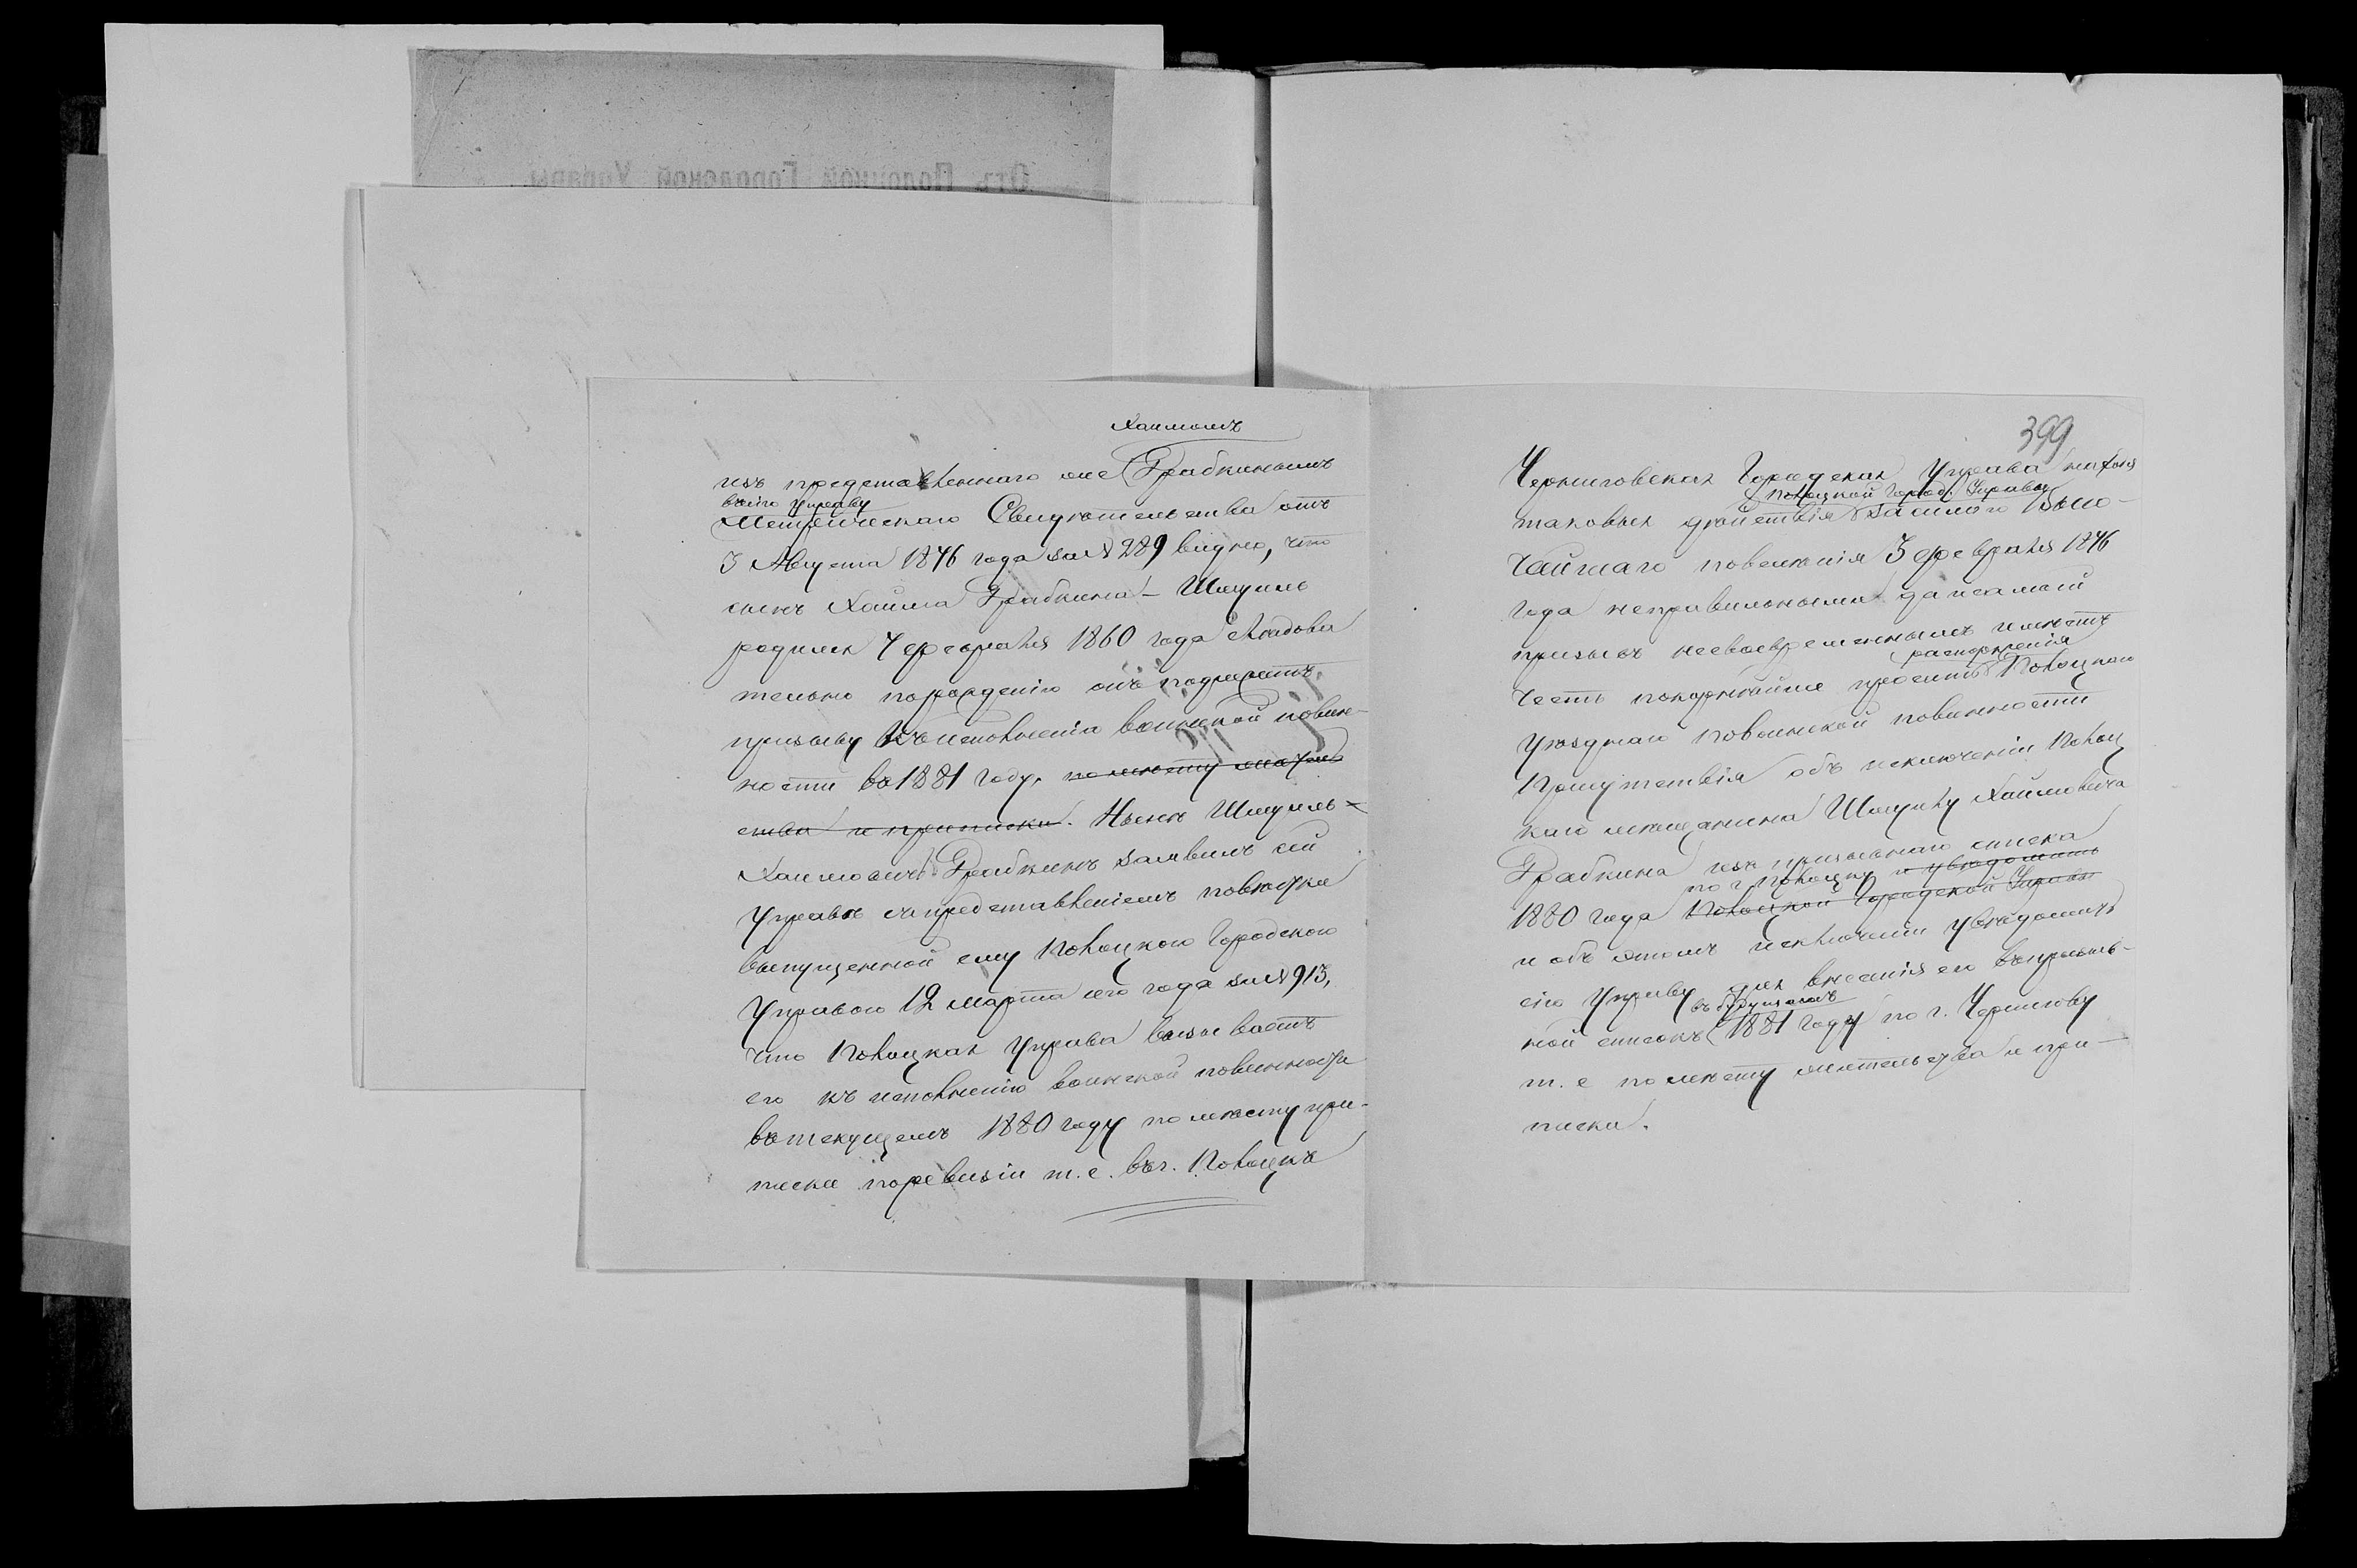 Отъ Полоцкой Городской Управы
Хаимомъ
изъ представленнаго ме Грабкинымъ
въ сію Управу
Метрическаго Свидѣтельства отъ
3 Августа 1876 года за № 289 видно, что
сынъ Хаима Грабкина – Шмуиль
родился 4 февраля 1860 года слѣдова
тельно по рожденію онъ подлежитъ
призыву къ исполненію воинской повин-
ности въ 1881 году, по мѣсту житель
ства и приписки. Нынѣ Шмуиль
Хаимовичъ Грабкинъ заявилъ сей
Управѣ съ представленіемъ повѣстки
выпущенной ему Полоцкою Городскою
Управою 12 марта сего года за № 913,
что Полоцкая Управа вызываетъ
его къ исполненію воинской повинности
въ текущемъ 1880 году по мѣсту при-
писки по ревизіи т. е. въ г. Полоцкѣ
399
Черниговская Городская Управа находя
Полоцкой Город. Управы
таковыя дѣйствія за силою Высо-
чайшаго повелѣнія 3 февраля 1876
года неправильными да и самый
призывъ несвоевременнымъ имѣетъ
распоряженія
честь покорнѣйше просить Полоцкаго
Уѣзднаго по воинской повинности
Присутствія объ исключеніи Полоц
каго мѣщанина Шмуилу Хаимовича
Грабкина изъ призывнаго списка
по г. Полоцку и увѣдомить
1880 года Полоцкой Городской Управы
и объ этомъ исключеніи увѣдомить
сію Управу для внесенія его въ призыв-
въ будущемъ
ной списокъ 1881 году по г. Чернигову
т. е по мѣсту жительства и при-
писки.